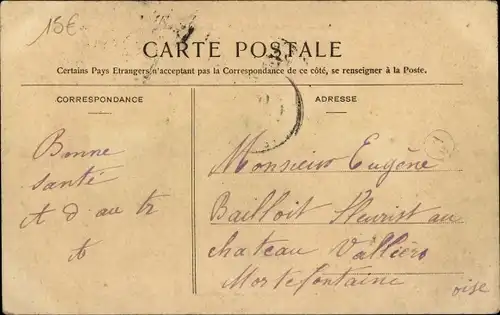 15€
CARTE POSTALE
Certains Pays Etrangers n'acceptant pas la Correspondance de ce côté, se renseigner à la Poste.
CORRESPONDANCE
ADRESSE
Bonne
santé
Monsieur Eugène
Bailloit fleurist au
chateau Vallière
Mortefontaine
oise